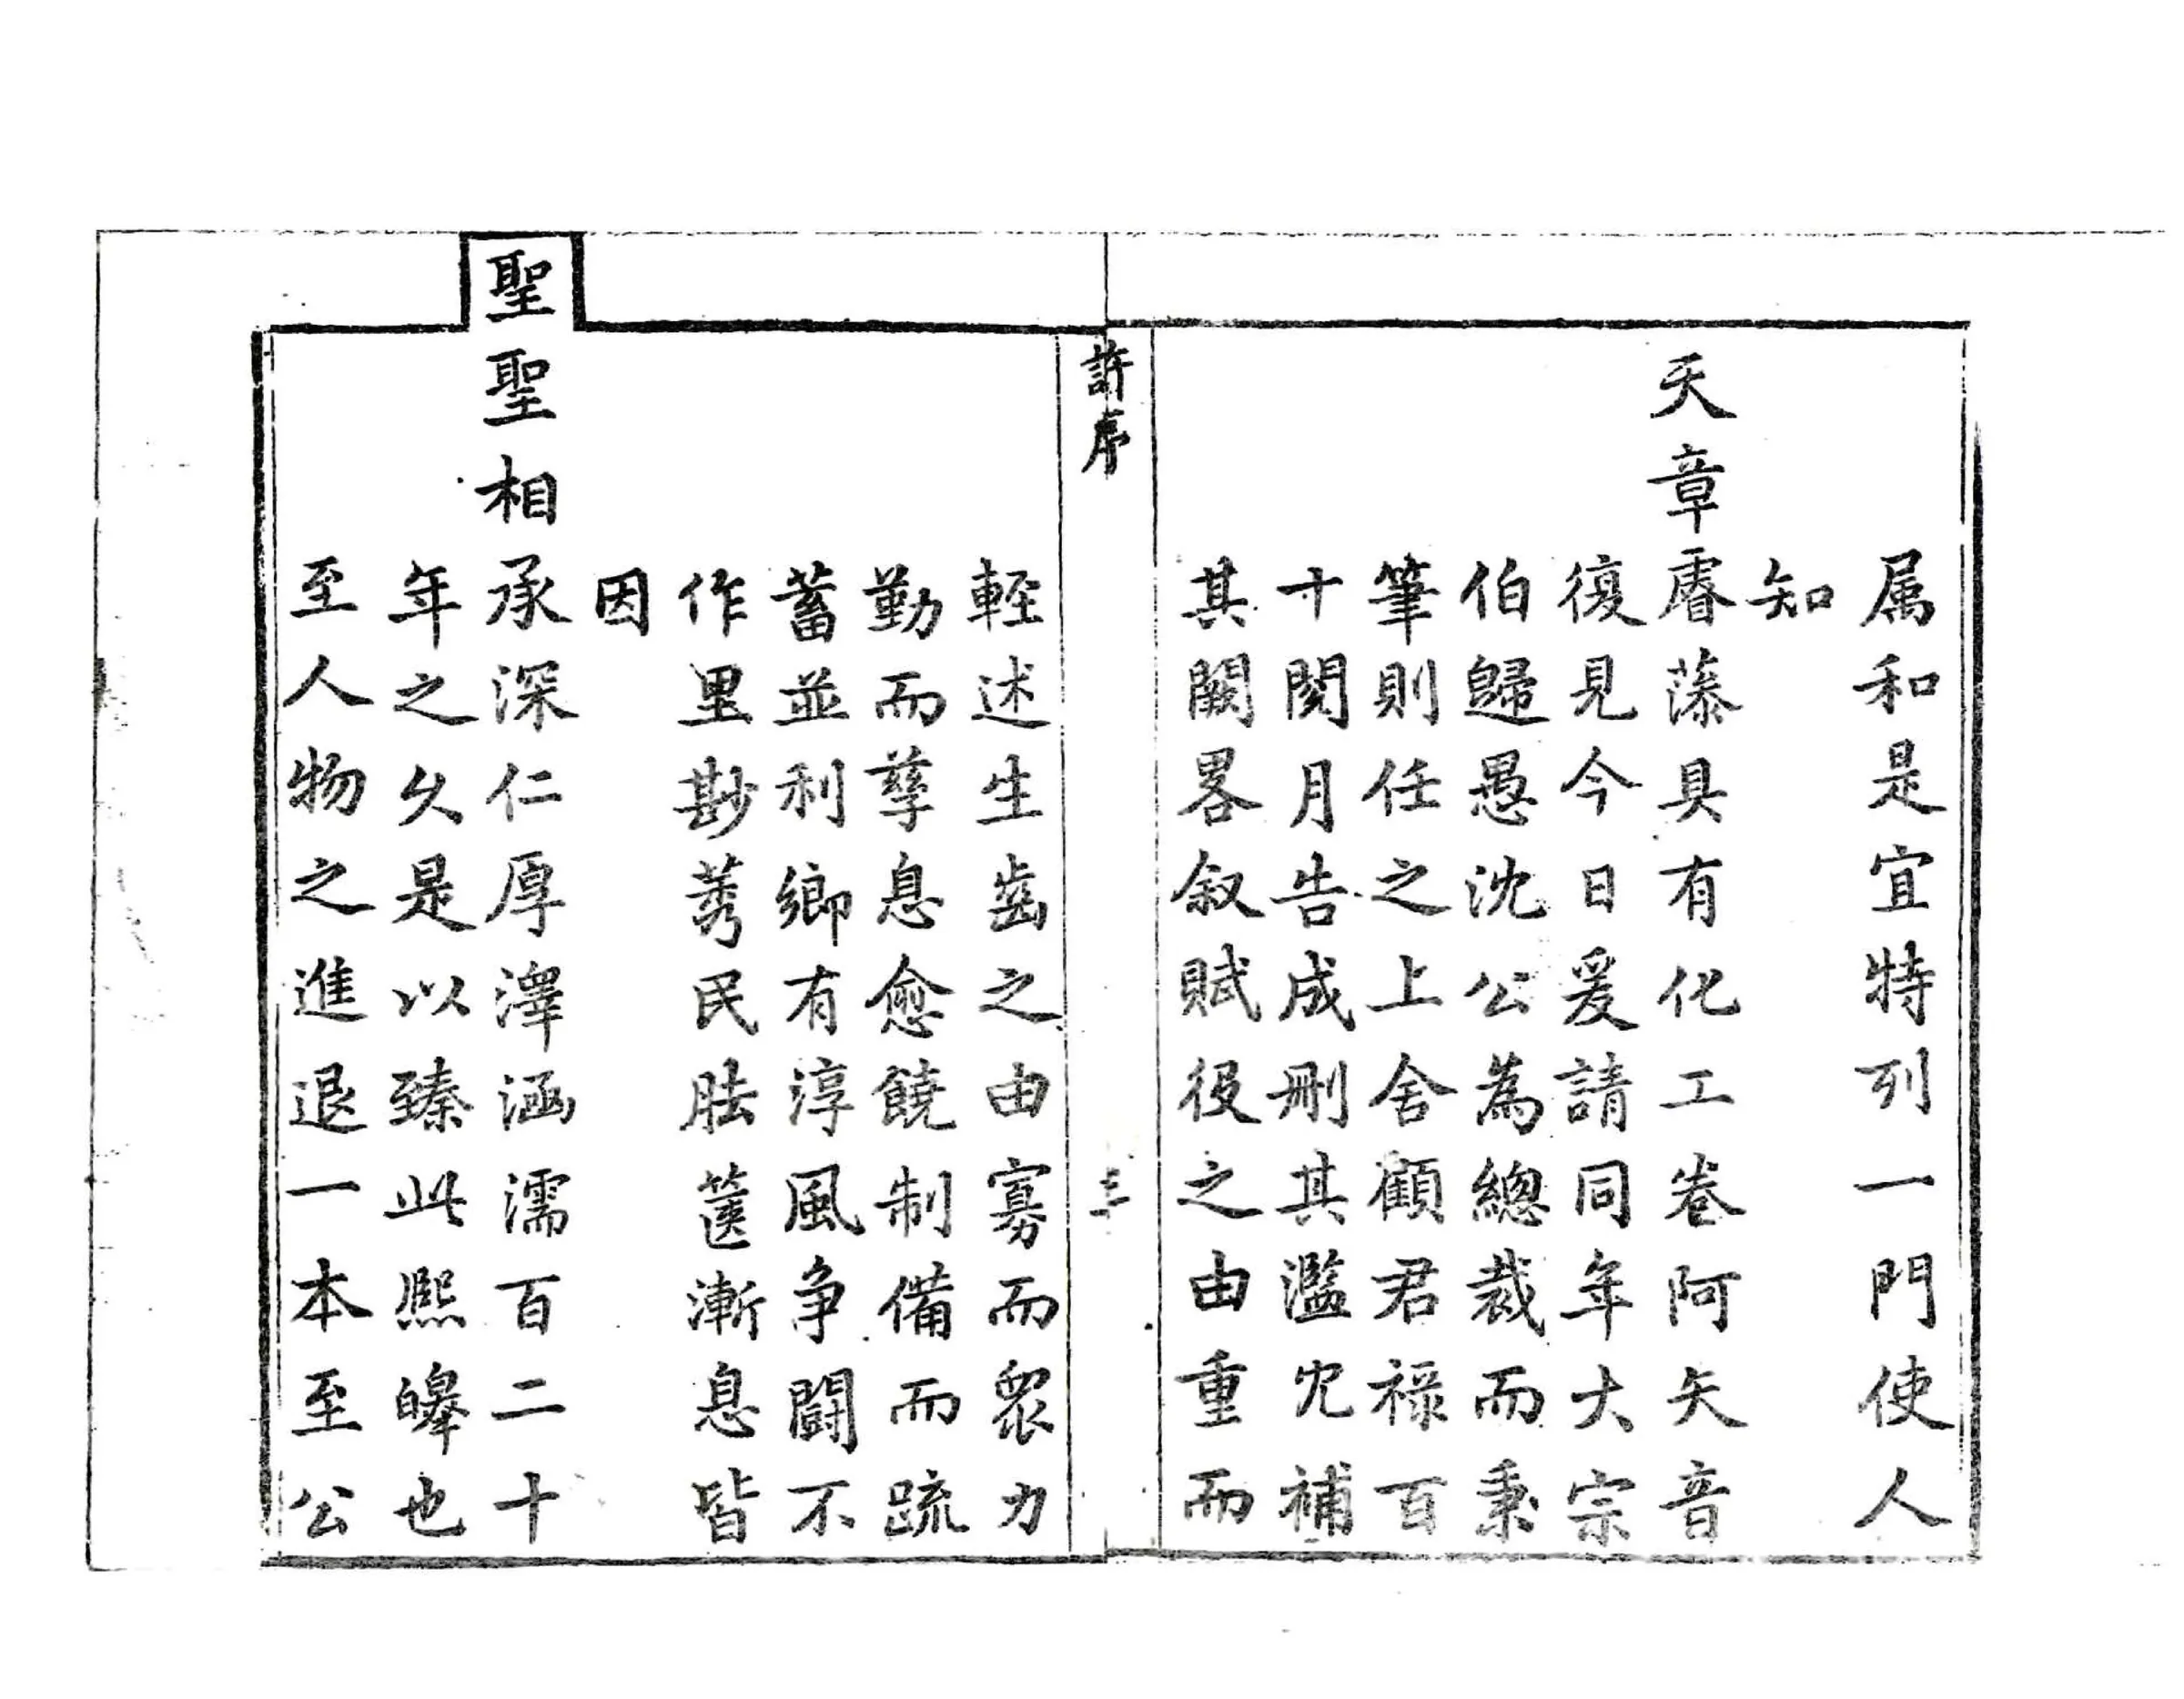 属和是宜特列一門使人
知
天章睿藻具有化工卷阿矢音
復見今日爰請同年大宗
伯歸愚沈公為總裁而秉
筆則任之上舍顧君祿百
十閱月告成刪其濫冗補
其闕畧叙賦役之由重而
許序
三
輕述生齒之由寡而眾力
勤而孳息愈饒制備而疏
蓄並利鄉有淳風争鬪不
作里尠莠民胠篋漸息皆
因
聖聖相承深仁厚澤涵濡百二十
年之久是以臻此熙皞也
至人物之進退一本至公